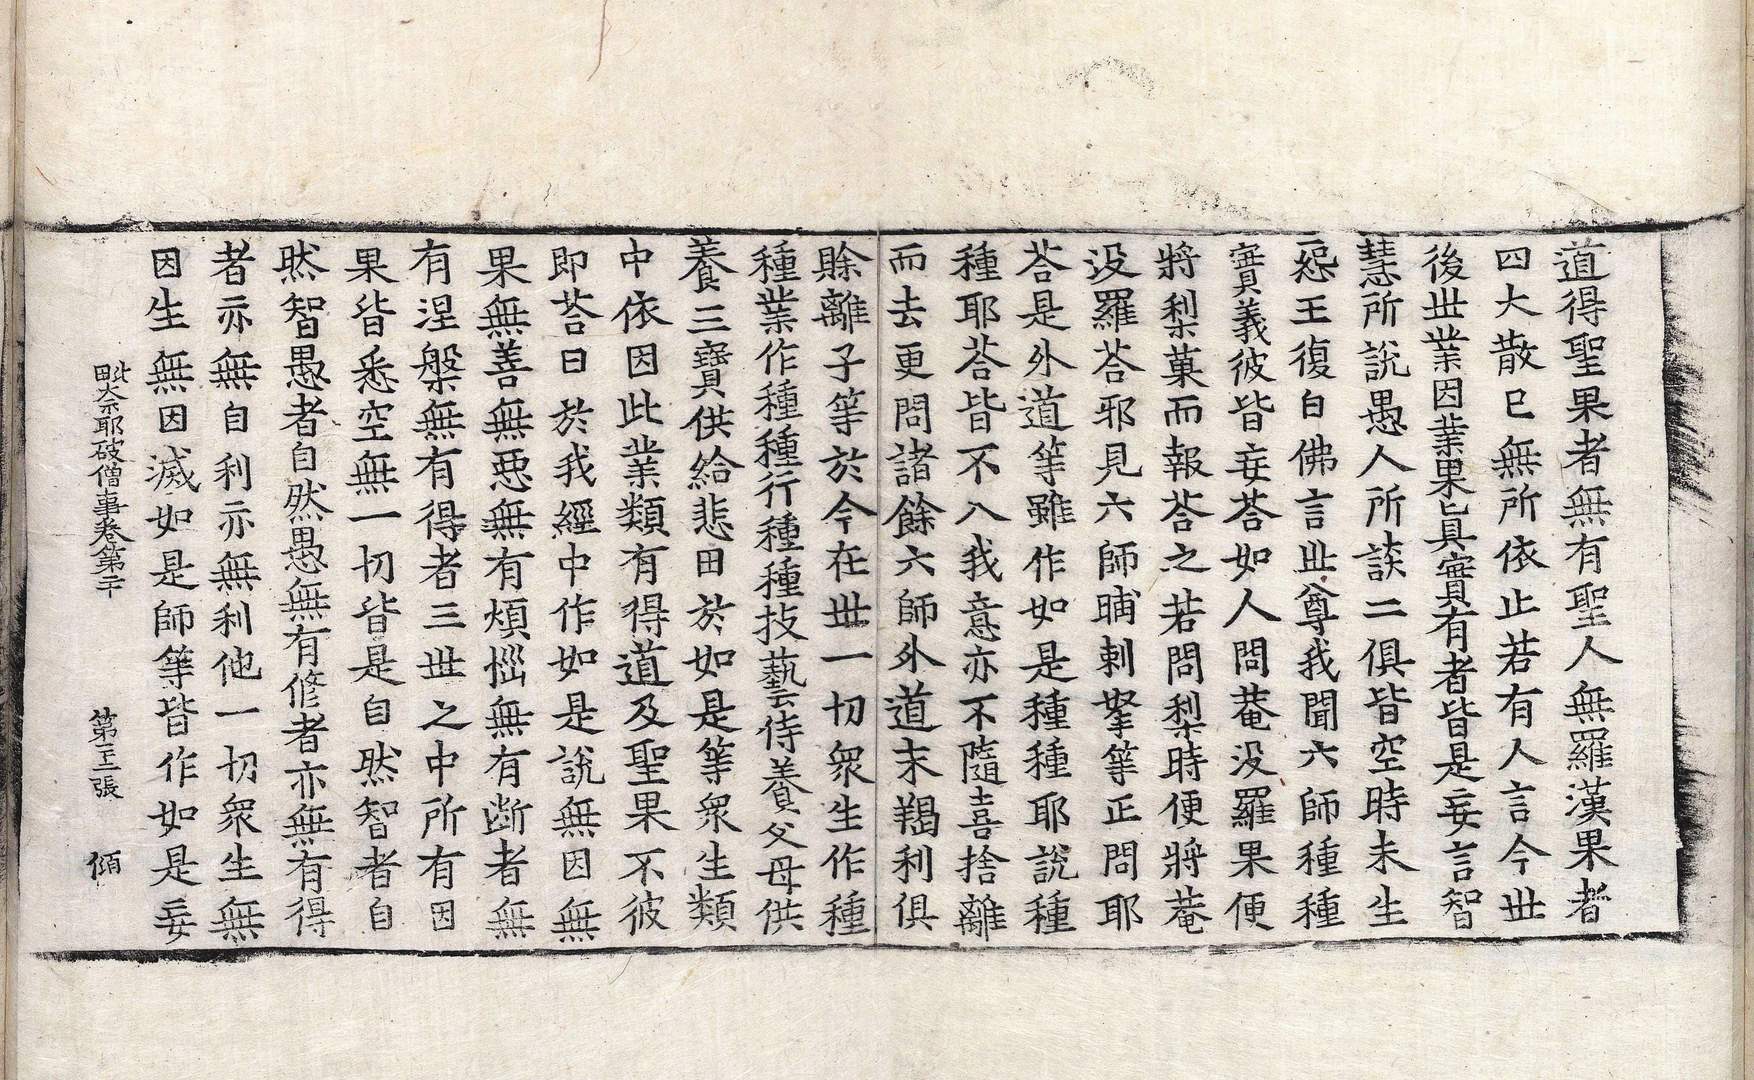 道得聖果者無有聖人無羅漢果者
四大散已無所依止若有人言今世
後世業因業果已具實有者皆是妄言智
慧所說愚人所談二俱皆空時未生
惡王復白佛言世尊我聞六師種種
實義彼皆妄荅如人問菴没羅果便
將梨菓而報荅之若問梨時便將菴
没羅荅邪見六師晡剌拏等正問耶
荅是外道等雖作如是種種耶說種
種耶荅皆不入我意亦不隨喜捨離
而去更問諸餘六師外道末羯利俱
賒離子等於今在世一切衆生作種
種業作種種行種種技藝侍養父母供
養三寶供給悲田於如是等衆生類
中依因此業類有得道及聖果不彼
即荅曰於我經中作如是說無因無
果無善無惡無有煩惱無有断者無
有涅槃無有得者三世之中所有因
果皆悉空無一切皆是自然智者自
然智愚者自然愚無有修者亦無有得
者亦無自利亦無利他一切衆生無
因生無因滅如是師等皆作如是妄
毗奈耶破僧事卷第二十 第十三張 傾